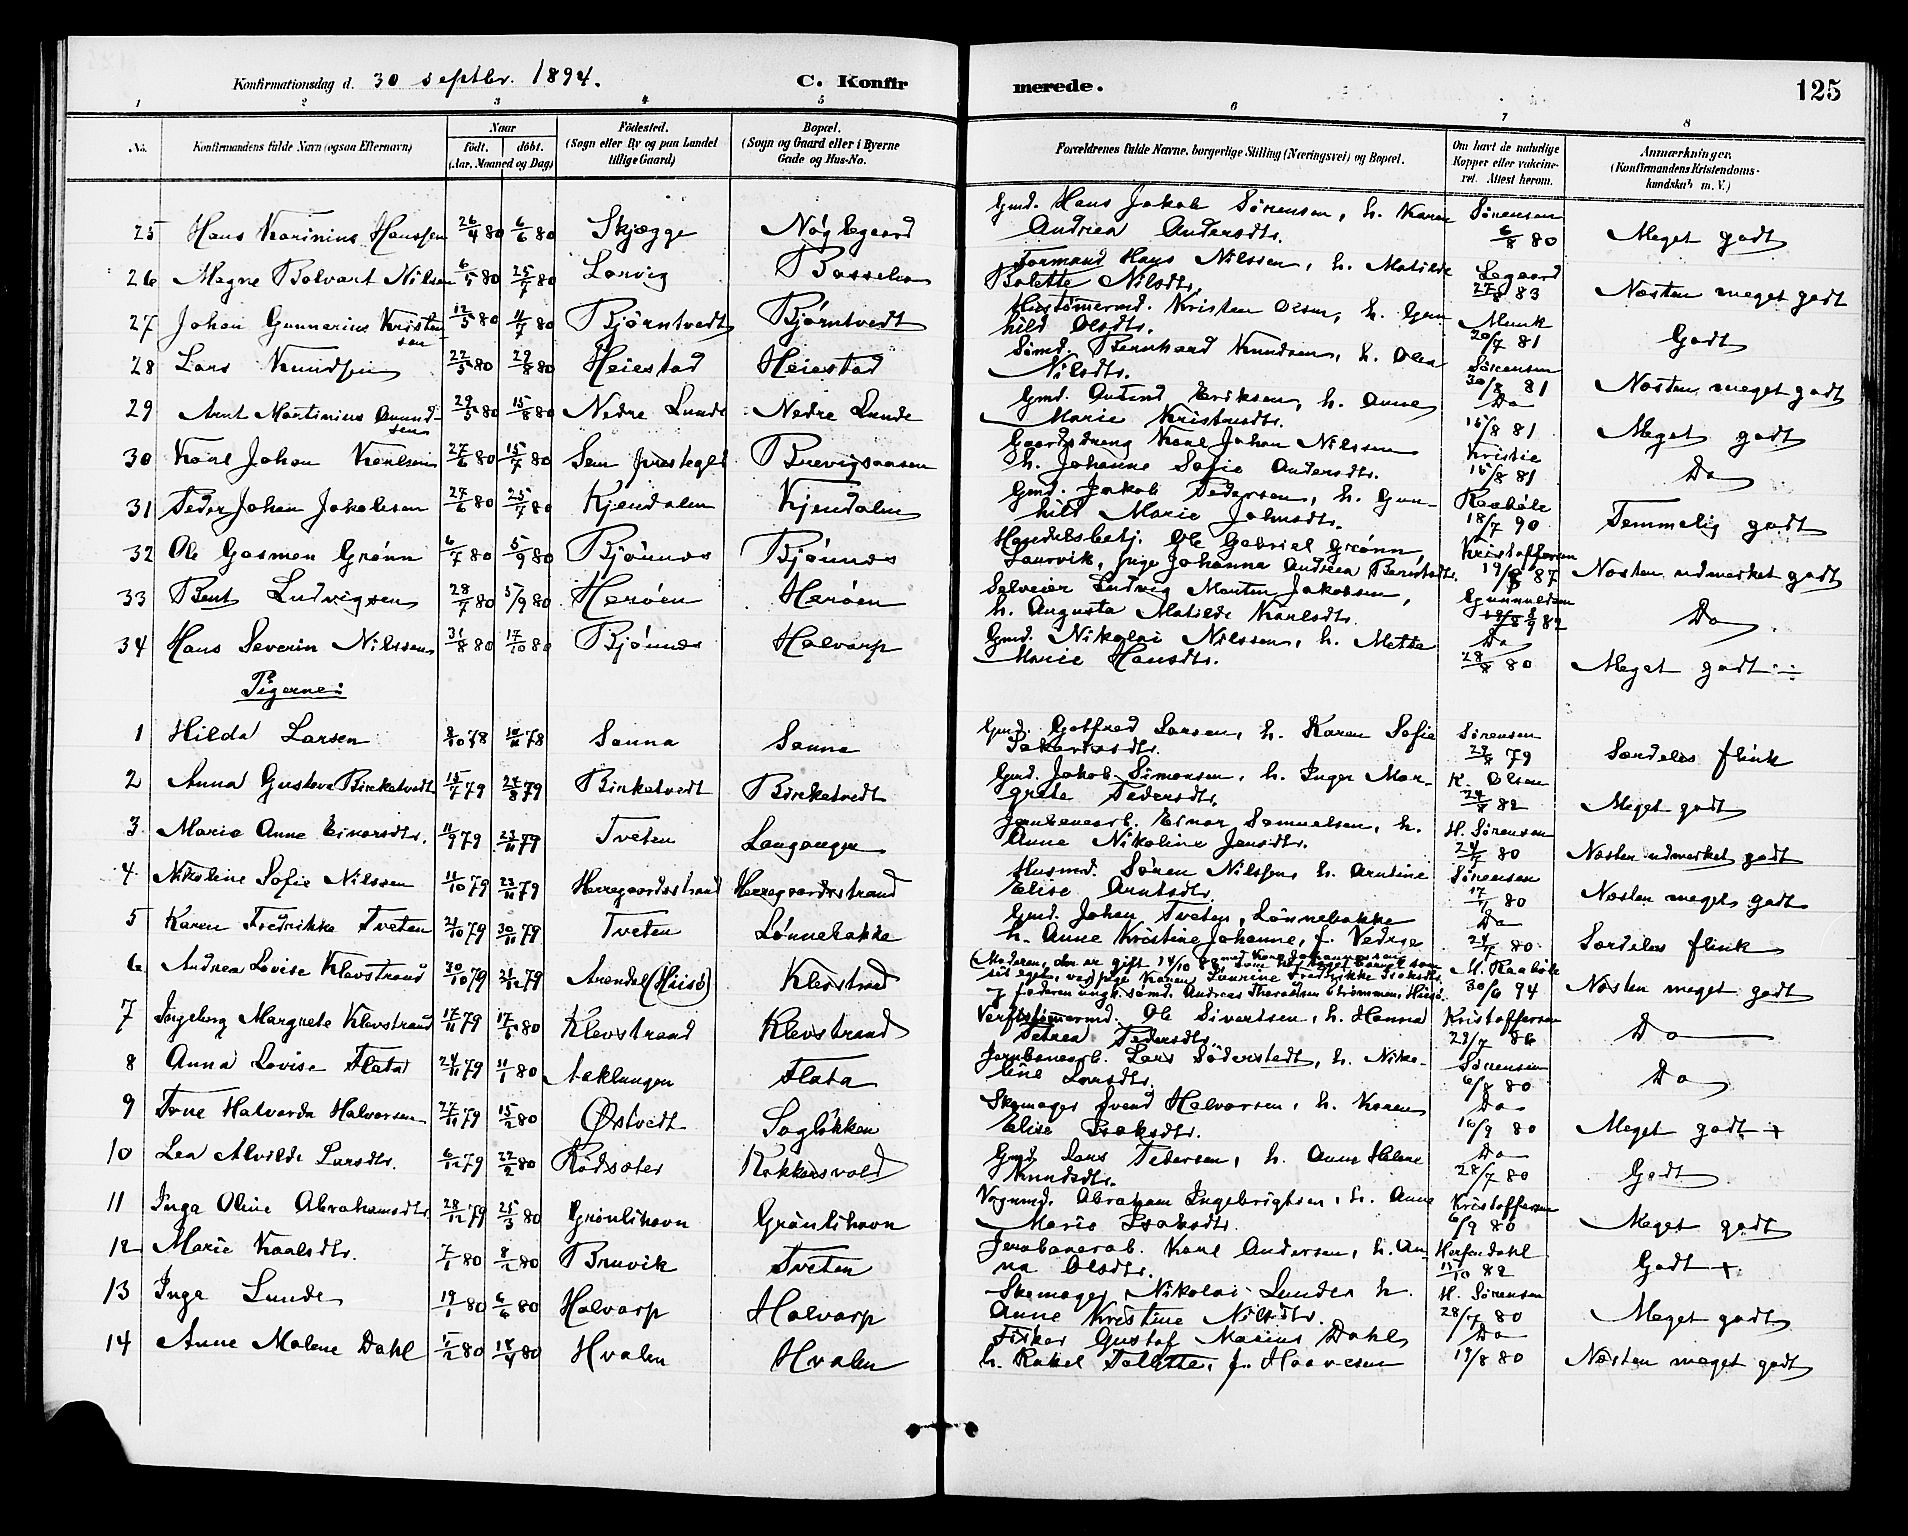 Konfirmationsdag d. 30 septbr. 1894.
C. Konfirmerede.
125
1 2 3 4 5 6 7 8
No. Konfirmandens fulde Navn (ogsaa Efternavn) Naar født. døbt. (Aar, Maaned og Dag) Födested. (Sogn eller By og paa Landet tillige Gaard) Bopæl. (Sogn og Gaard eller i Byerne Gade og Hus-No. Forældrenes fulde Navne, borgerlige Stilling (Næringsvei) og Bopæl. Om havt de naturlige Kopper eller vakcineret. Attest herom. Anmærkninger. (Konfirmandens Kristendomskundskab m. V.)
25 Hans Karinius Hanssen 26/4 80 6/6 80 Skjægge Nøglegaard Gmd. Hans Jakob Sørensen, h. Karen Andrea Andersdtr. Sørensen 6/8 80 Meget godt
26 Magne Bolvart Nilsen 6/5 80 25/7 80 Larvig Basselva Formand Hans Nilssen, h. Matilde Bolette Nilsdtr. Legaard 27/8 83 Næsten meget godt
27 Johan Gunnerius Kristensen 12/5 80 11/7 80 Bjørntvedt Bjørntvedt Hustømermd. Kristen Olsen, h. Gunhild Olsdtr. Munk 20/7 81 Godt
28 Lars Knudsen 22/5 80 29/8 80 Heiestad Heiestad Sømd. Bernhard Knudsen, h. Olea Nilsdtr. Sørensen 30/8 81 Næsten meget godt
29 Arnt Martinius Amundsen 29/5 80 15/8 80 Nedre Lunde Nedre Lunde Gmd. Amund Eriksen, h. Anne Marie Kristensdtr. Do 16/8 81 Meget godt
30 Karl Johan Karlsen 27/6 80 15/7 80 Sem prestegld Brevigsaasen Gaardsdreng Karl Johan Nilssen h. Johanne Sofie Andersdtr. Kristie 15/8 81 Do
31 Peder Johan Jakobsen 27/6 80 25/7 80 Kjendalen Kjendalen Gmd. Jakob Pedersen, h. Gunhild Marie Johnsdtr. Raabøle 18/7 90 Temmelig godt
32 Ole Gasman Grønn 6/7 80 5/9 80 Bjønnes Bjønnes Handelsbetj. Ole Gabriel Grønn, Laurvik, pige Johanna Andrea Berntsdtr. Kristoffersen 19/8 87 Næsten udmerket godt
33 Bent Ludvigsen 28/7 80 5/9 80 Herøen Herøen Selveier Ludvig Martin Jakobsen, h. Augusta Matilde Karlsdtr. Gunnuldsen 8/9 82 Do
34 Hans Severin Nilssen 31/8 80 17/10 80 Bjønnes Halvarp Gmd. Nikolai Nilssen, h. Mette Marie Hansdtr. Do 28/8 80 Meget godt ÷
Pigerne:
1 Hilda Larsen 8/10 78 10/11 78 Sanna Sanna Gmd. Gotfred Larsen, h. Karen Sofie Sørensen 29/8 79 Særdeles flink
2 Anna Gustava Birketvedt 15/7 79 24/8 79 Birketvedt Birketvedt Gmd. Jakob Simonsen, h. Inger Margrete Pedersdtr. K. Olsen 24/8 82 Meget godt
3 Marie Anne Einarsdtr. 11/9 79 23/11 79 Tveten Langangen Jernbanearb. Einar Samuelsen, h. Anne Nikoline Jensdtr. H. Sørensen 24/7 80 Næsten udmerket godt
4 Nikoline Sofie Nilssen 11/10 79 23/11 79 Herregaardsstrand Herregaardsstrand Husmd. Søren Nilssen, h. Arntine Elise Arntsdtr. Sørensen 17/7 80 Næsten meget godt
5 Karen Fredrikke Tveten 21/10 79 30/11 79 Tveten Lønnebakke Gmd. Johan Tveten, Lønnebakke h. Anne Kristine Johanne, f. Vedge Do 24/7 80 Særdeles flink
6 Andrea Lovise Klevstrand 30/10 79 21/12 79 Arendal (Hisø) Klevstrand (Moderen, der er gift 14/10 88 med Hans pige Karen Laurine Fredrikke faderen ungk. sømd. Andreas Strømmen, Hisø. M. Raabøle 30/6 94 Næsten meget godt
7 Ingeborg Margrete Klevstrand 17/11 79 17/5 80 Klevstrand Klevstrand Verftstømermd. Ole Sivertsen, h. Hanna Petrea Pedersdtr. Kristoffersen 29/7 86 Do
8 Anna Lovise Flata 24/11 79 11/1 80 Aaklungen Flata Jernbanearb. Lars Søderstedt, h. Nikoline Larsdtr. Sørensen 6/8 80 Do
9 Tone Halvarda Halvorsen 27/11 79 15/2 80 Østvedt Sagløkken Skomager Svend Halvorsen, h. Karen Elise Isaksdtr. Do 16/9 80 Meget godt +
10 Lea Alvilde Larsdtr. 6/12 79 22/2 80 Rødsæter Kokkersvold Gmd. Lars Pedersen, h. Anne Helene Knudsdtr. Do 28/7 80 Godt
11 Inga Oline Abrahamsdtr. 28/12 79 25/3 80 Grønlihavn Grønlihavn Vognmd. Abraham Ingebrigtsen, h. Anne Marie Isaksdtr. Kristoffersen 6/9 80 Meget godt
12 Marie Karlsdtr. 7/1 80 8/2 80 Brevik Tveten Jernbanearb. Karl Andersen, h. Anna Olsdtr. Herfendahl 15/10 82 Godt +
13 Inga Lunde 19/1 80 6/6 80 Halvarp Halvarp Skomager Nikolai Lunde, h. Anne Kristine Nilsdtr. H. Sørensen 28/7 80 Meget godt
14 Anne Malene Dahl 15/2 80 18/4 80 Hvalen Hvalen Fisker Gustaf Marius Dahl, h. Rakel Tallette, f. Haavesen Do 19/8 80 Næsten meget godt